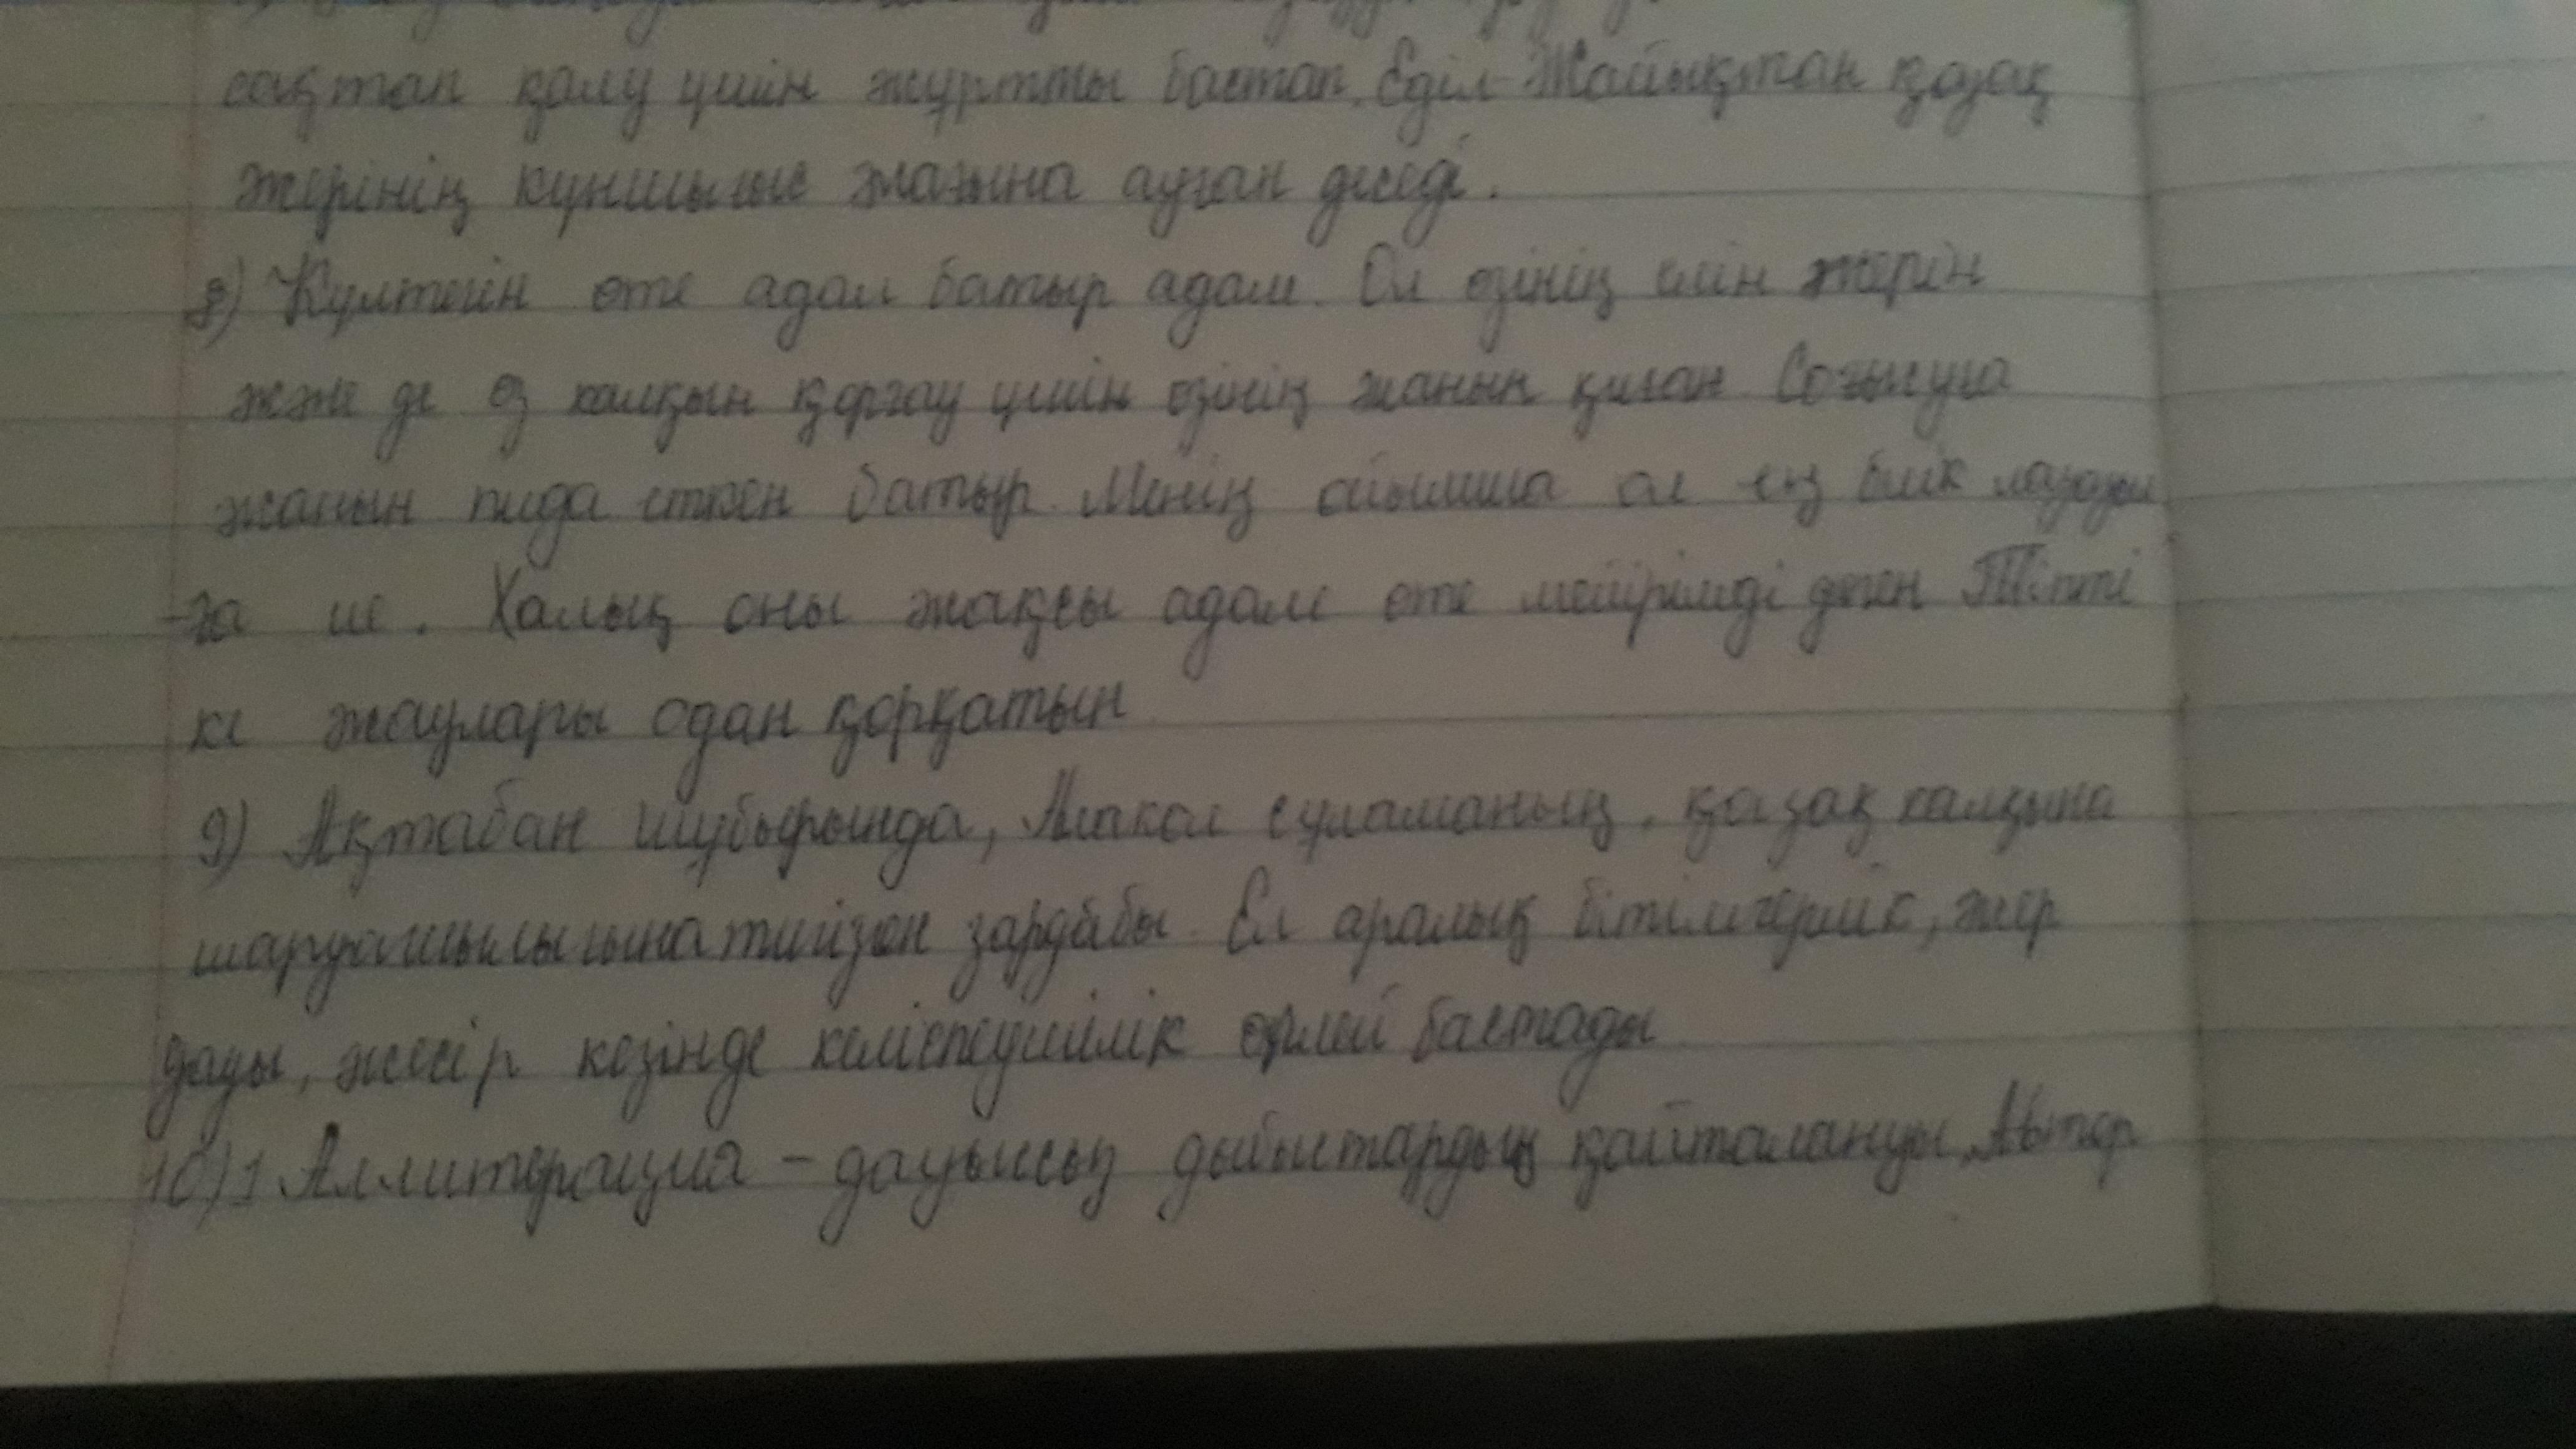 сақтап қалу үшін жұртты бастап, Еділ-Жайықтан қазақ
жерінің күншығыс жағына ауған деседі.
8) Күлтегін өте адал батыр адам. Ол өзінің елін жерін
және де өз халқын қорғау үшін өзінің жанын қиған Соғысуға
жанын пида еткен батыр. Менің ойымша ол ең биік
-ға ие. Халық оны жақсы адам өте мейірімді деген Тіпті
кі жаулары одан қорқатын
9) Ақтабан шұбырынды, Алакөл сұламаның, қазақ халқына
шаруашылығына тигізген зардабы. Ел аралық бітімгерлік, жер
дауы, жесір кезінде келіспеушілік өрлей бастады
10) 1 Аллитерация - дауыссыз дыбыстардың қайталануы, Автор